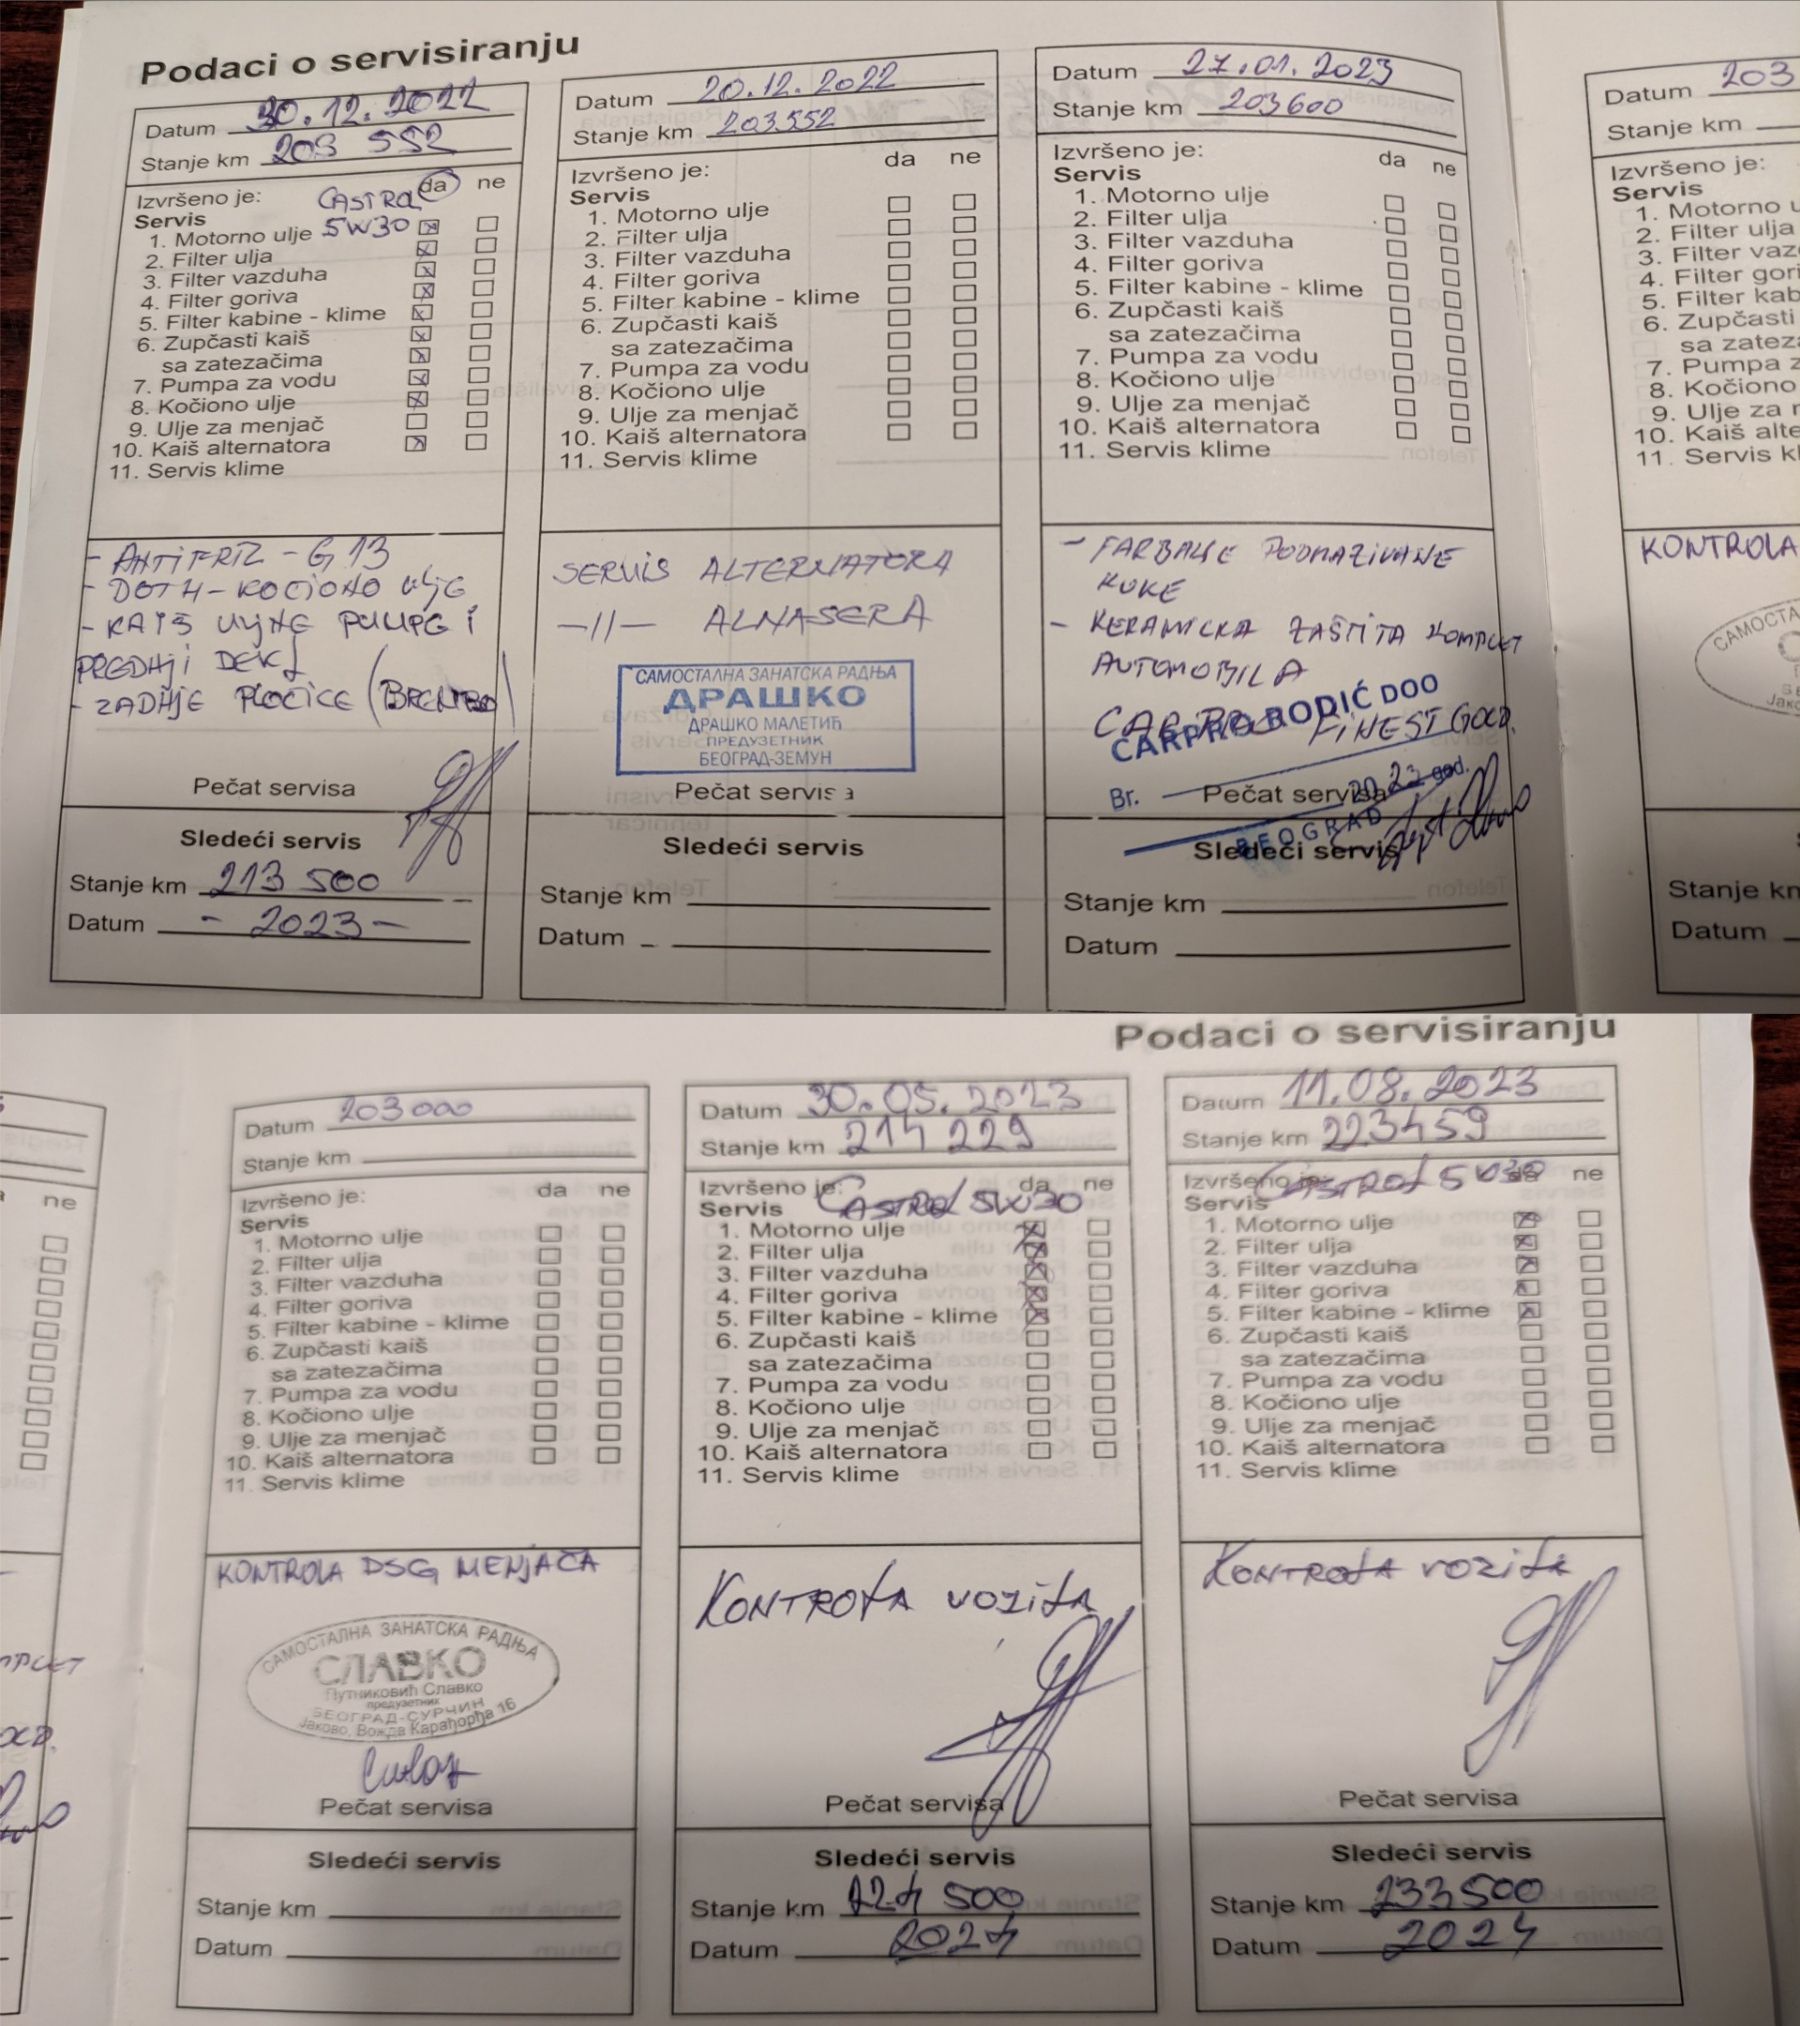 Podaci o servisiranju
Datum 30.12.2022
Stanje km 203 552
Izvršeno je: da ne
CASTROL
Servis
1. Motorno ulje 5W30
2. Filter ulja
3. Filter vazduha
4. Filter goriva
5. Filter kabine - klime
6. Zupčasti kaiš
sa zatezačima
7. Pumpa za vodu
8. Kočiono ulje
9. Ulje za menjač
10. Kaiš alternatora
11. Servis klime
- ANTIFRIZ - G 13
- DOT4 - KOCIONO ulje
- KAIŠ uljNE PUMPE i
PREDNJI DEKL
- ZADNJE PLOCICE (BREMBO)
Pečat servisa
Sledeći servis
Stanje km 213 500
Datum - 2023 -
Datum 20.12.2022
Stanje km 203552
Izvršeno je: da ne
Servis
1. Motorno ulje
2. Filter ulja
3. Filter vazduha
4. Filter goriva
5. Filter kabine - klime
6. Zupčasti kaiš
sa zatezačima
7. Pumpa za vodu
8. Kočiono ulje
9. Ulje za menjač
10. Kaiš alternatora
11. Servis klime
SERVIS ALTERNATORA
-//- ALNASERA
САМОСТАЛНА ЗАНАТСКА РАДЊА
ДРАШКО
ДРАШКО МАЛЕТИЋ
ПРЕДУЗЕТНИК
БЕОГРАД-ЗЕМУН
Pečat servisa
Sledeći servis
Stanje km
Datum
Datum 27.01.2023
Stanje km 203600
Izvršeno je: da ne
Servis
1. Motorno ulje
2. Filter ulja
3. Filter vazduha
4. Filter goriva
5. Filter kabine - klime
6. Zupčasti kaiš
sa zatezačima
7. Pumpa za vodu
8. Kočiono ulje
9. Ulje za menjač
10. Kaiš alternatora
11. Servis klime
- FARBANJE PODMAZIVANJE
KUKE
- KERAMICKA ZAŠTITA KOMPLET
AUTOMOBILA
CAR PRO FINEST GOLD.
CARPRO RODIĆ DOO
Br. 2023 god.
BEOGRAD
Pečat servisa
Sledeći servis
Stanje km
Datum
Datum 203
Stanje km
Izvršeno je:
Servis
1. Motorno u
2. Filter ulja
3. Filter vaz
4. Filter gori
5. Filter kab
6. Zupčasti
sa zatez
7. Pumpa z
8. Kočiono
9. Ulje za
10. Kaiš alte
11. Servis kl
KONTROLA
САМОСТА
Јако
Stanje km
Datum
Podaci o servisiranju
ne
Datum 203000
Stanje km
Izvršeno je: da ne
Servis
1. Motorno ulje
2. Filter ulja
3. Filter vazduha
4. Filter goriva
5. Filter kabine - klime
6. Zupčasti kaiš
sa zatezačima
7. Pumpa za vodu
8. Kočiono ulje
9. Ulje za menjač
10. Kaiš alternatora
11. Servis klime
KONTROLA DSG MENJAČA
САМОСТАЛНА ЗАНАТСКА РАДЊА
СЛАВКО
Путниковић Славко
предузетник
БЕОГРАД-СУРЧИН
Јаково, Вожда Карађорђа 16
Pečat servisa
Sledeći servis
Stanje km
Datum
Datum 30.05.2023
Stanje km 214 229
Izvršeno je: da ne
Servis CASTROL 5W30
1. Motorno ulje
2. Filter ulja
3. Filter vazduha
4. Filter goriva
5. Filter kabine - klime
6. Zupčasti kaiš
sa zatezačima
7. Pumpa za vodu
8. Kočiono ulje
9. Ulje za menjač
10. Kaiš alternatora
11. Servis klime
KONTROLA VOZILA
Pečat servisa
Sledeći servis
Stanje km 224 500
Datum 2024
Datum 11.08.2023
Stanje km 223459
Izvršeno je: da ne
CASTROL 5W30
Servis
1. Motorno ulje
2. Filter ulja
3. Filter vazduha
4. Filter goriva
5. Filter kabine - klime
6. Zupčasti kaiš
sa zatezačima
7. Pumpa za vodu
8. Kočiono ulje
9. Ulje za menjač
10. Kaiš alternatora
11. Servis klime
KONTROLA VOZILA
Pečat servisa
Sledeći servis
Stanje km 233500
Datum 2024